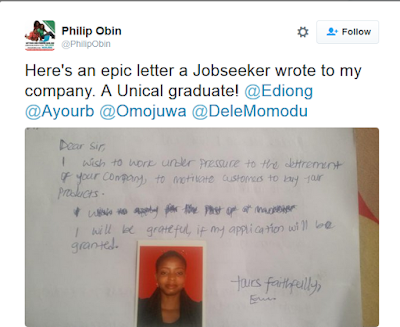 Philip Obin
@PhilipObin
Follow
Here's an epic letter a Jobseeker wrote to my
company. A Unical graduate! @Ediong
@Ayourb @Omojuwa @DeleMomodu
Dear Sir,
I wish to work under pressure to the detriment
of your Company, to motivate customers to buy your
products.
I wish to apply for the post of a marketer
I will be grateful, if my application will be
granted.
Yours faithfully,